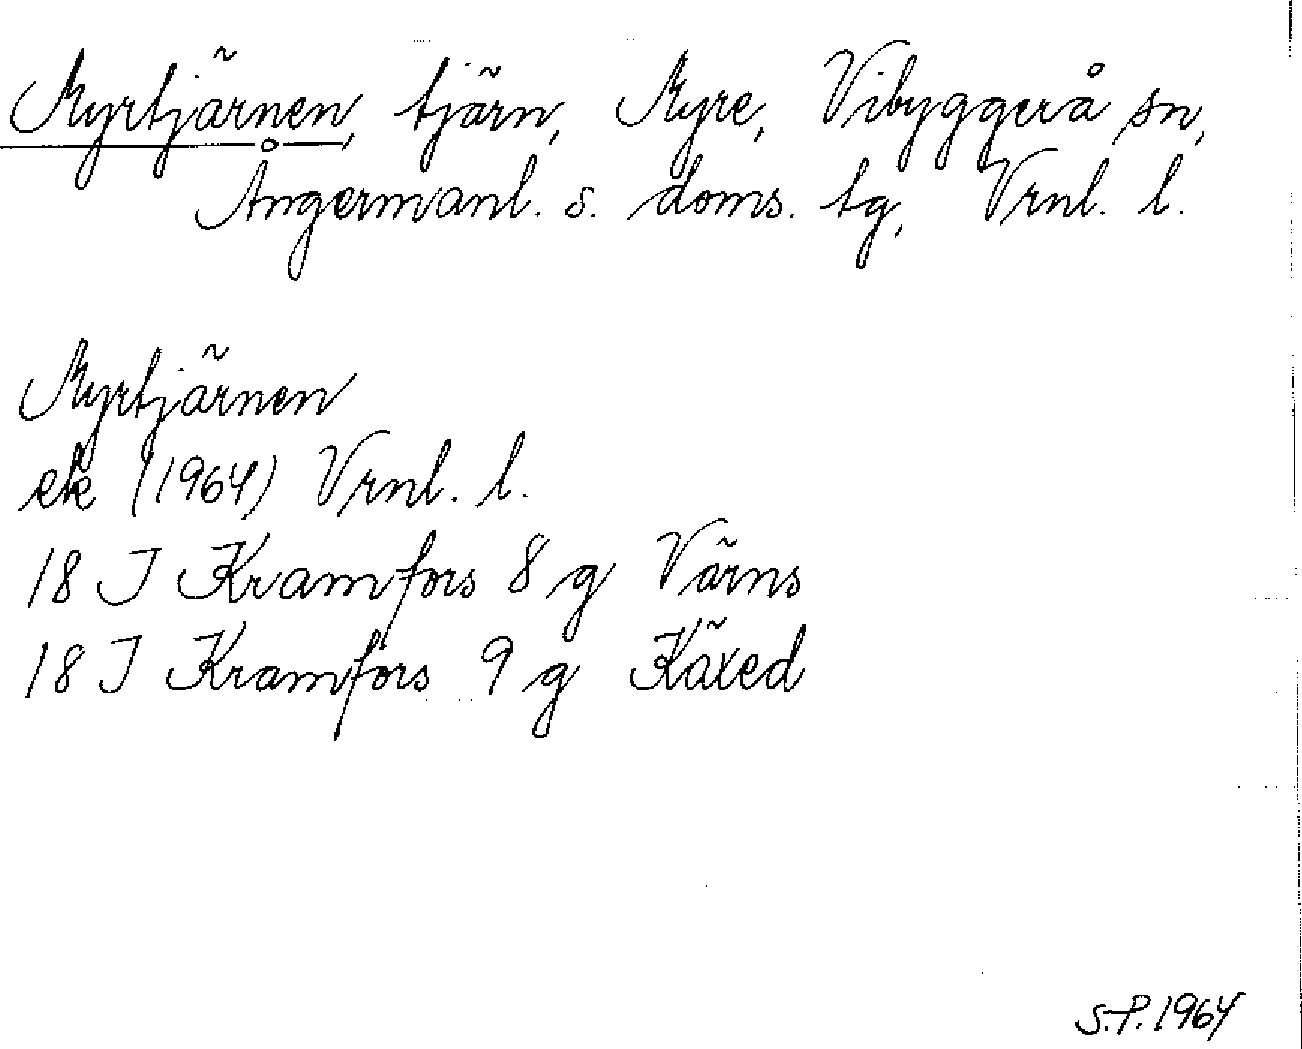 Myrtjärnen, tjärn, Myre, Vibyggerå sn,
Ångermanl. s. doms. tg, Vrnl. l.
Myrtjärnen
ek (1964) Vrnl. l.
18 I Kramfors 8 g Värns
18 I Kramfors 9 g Käxed
S.P. 1964